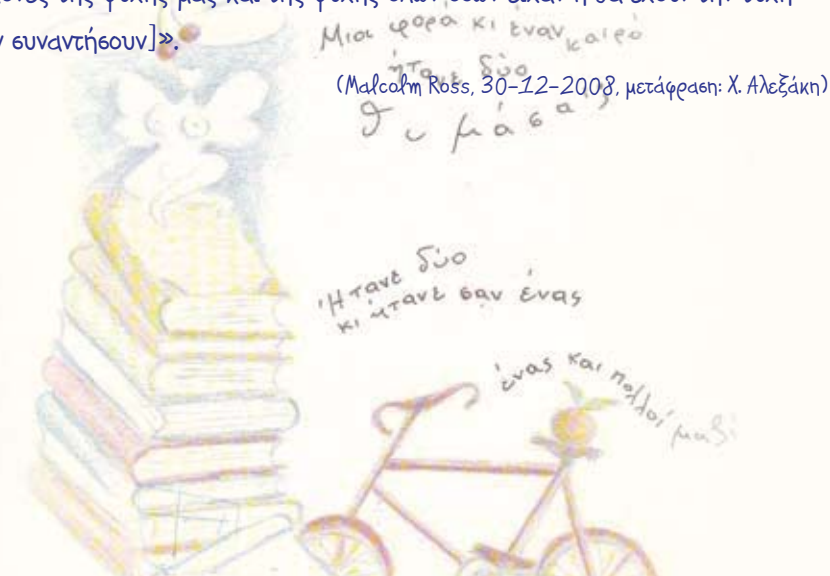 ν συναντήσουν]».
Μια φορά κι έναν καιρό
ήτανε δύο
(Malcolm Ross, 30-12-2008, μετάφραση: Χ. Αλεξάκη)
θυμάσαι;
Ήτανε δύο
κι ήτανε σαν ένας
ένας και πολλοί μαζί